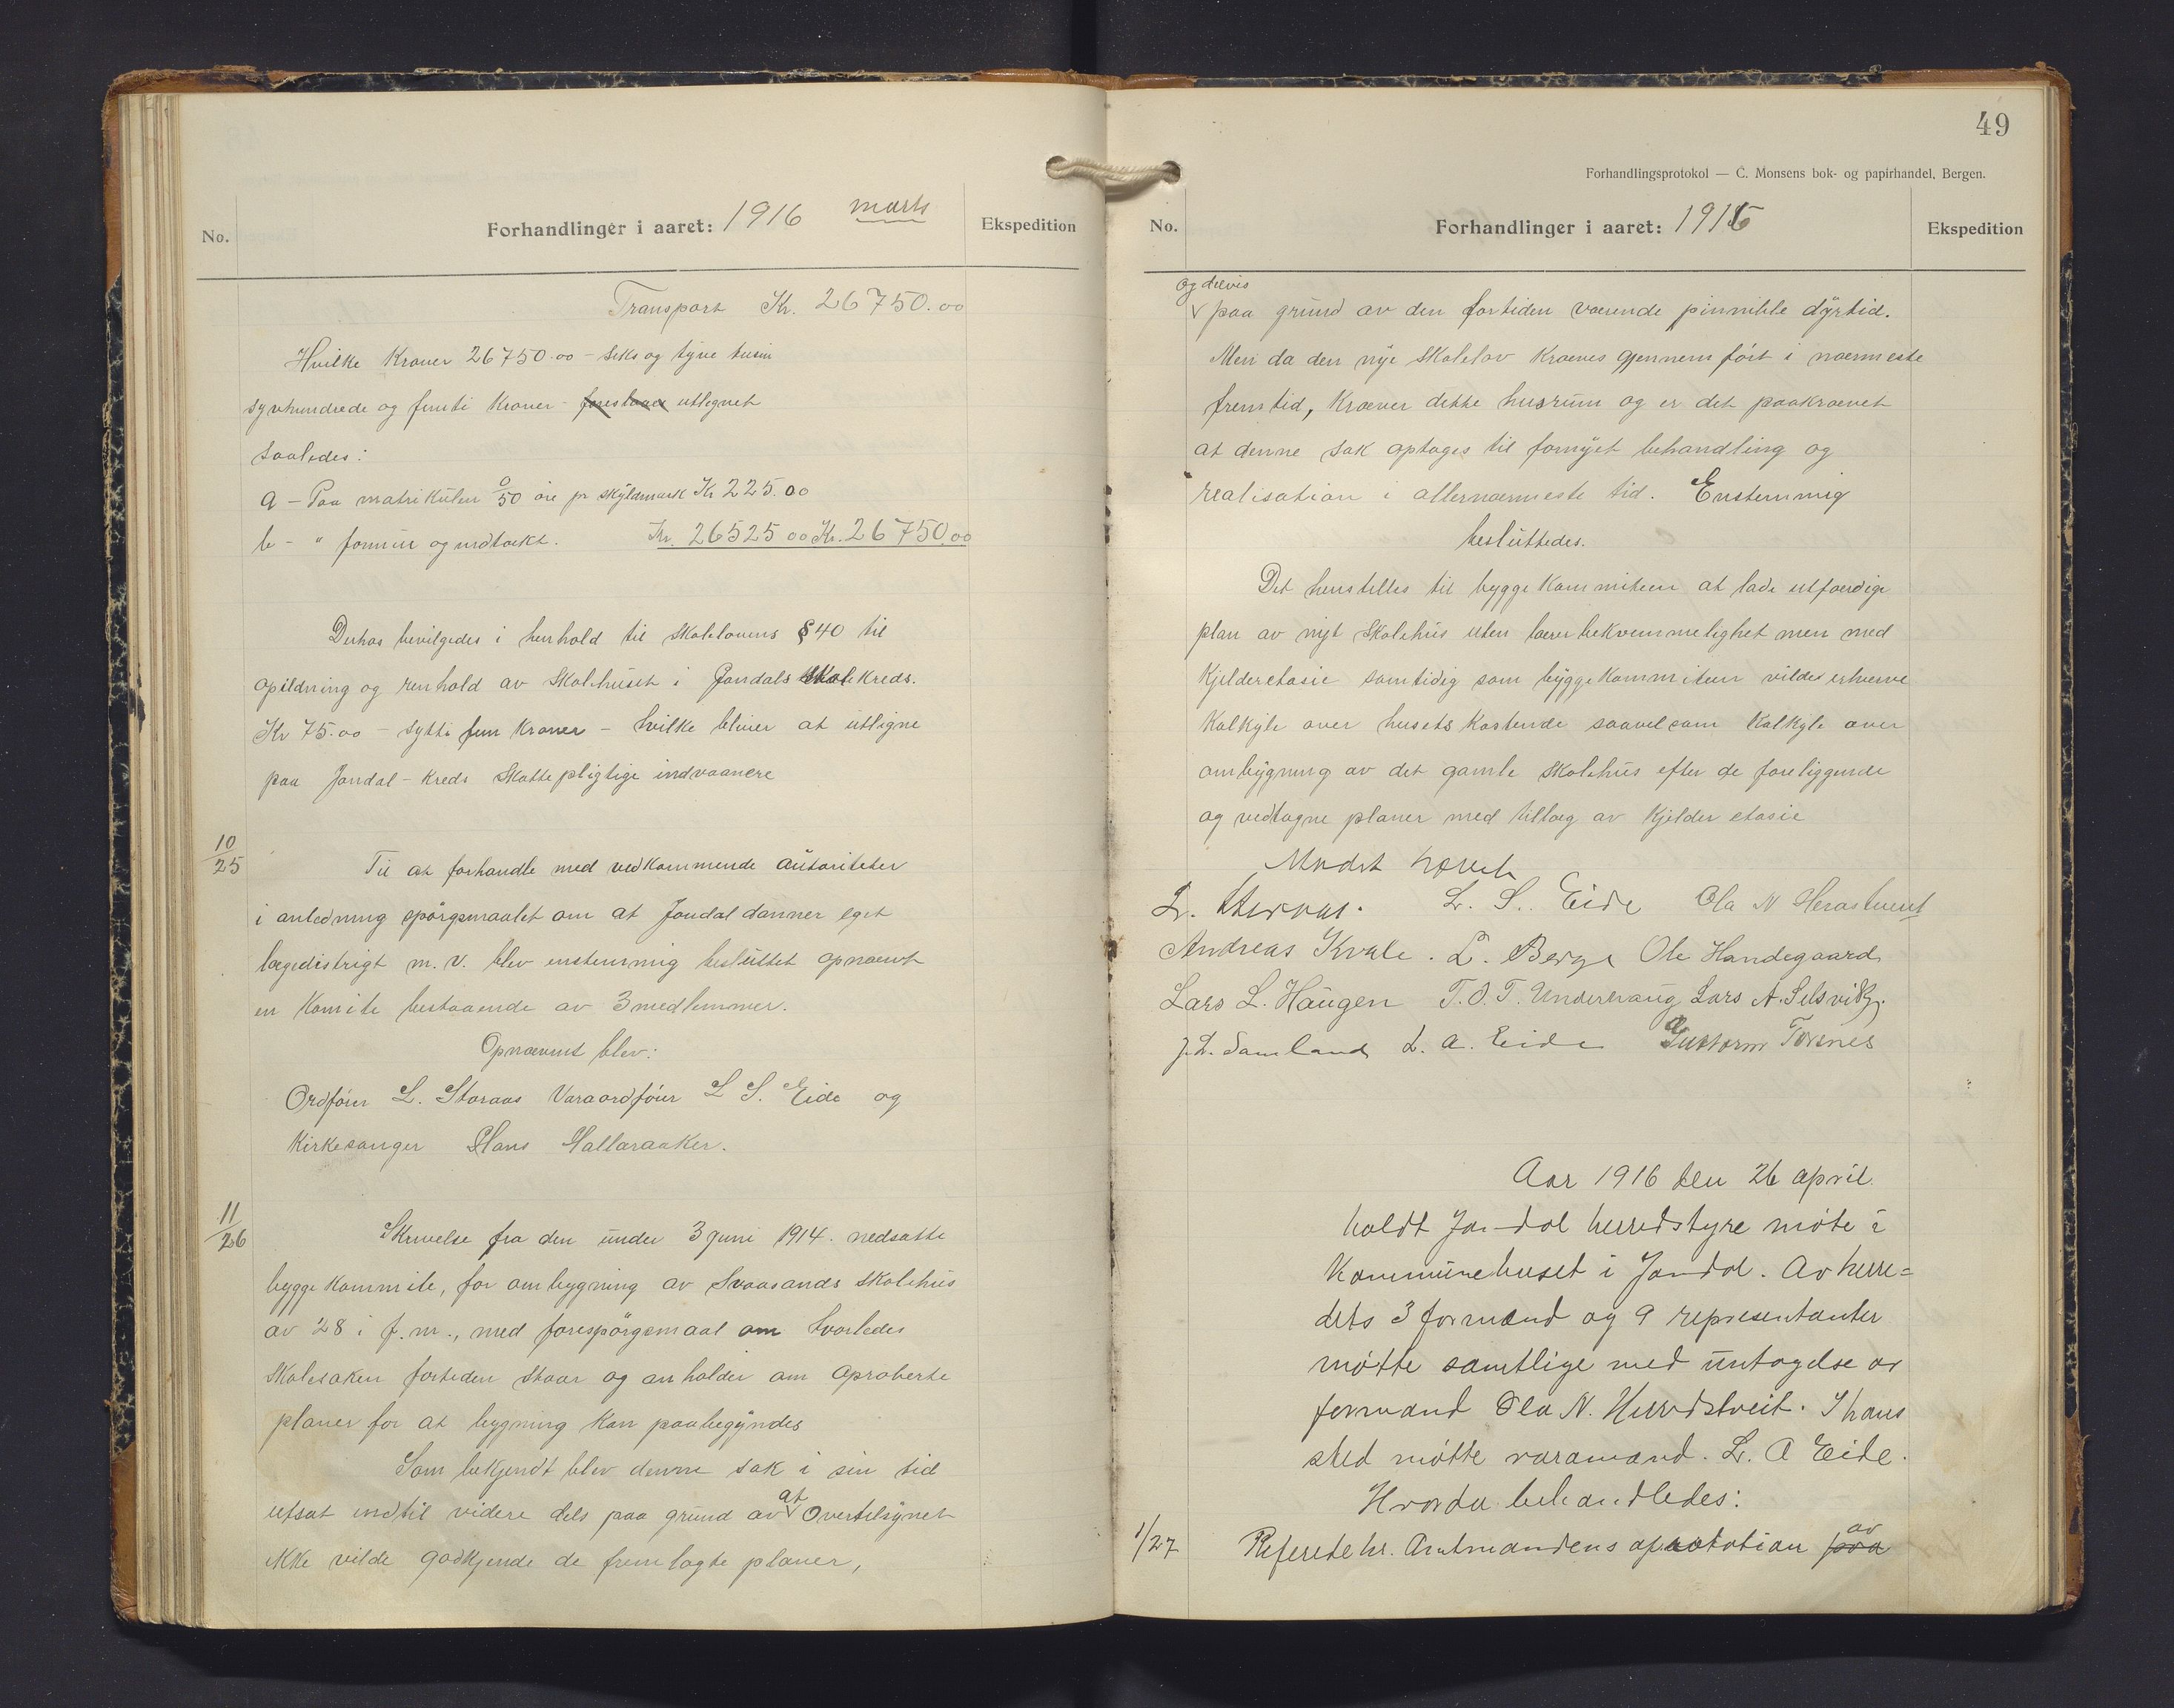 No.
Forhandlinger i aaret: 1916 marts
Ekspedition
Transport Kr. 26750.00
Hvilke Kroner 26750.00 – seks og tyve tusin
syvhundrede og femti Kroner – forestaaer utlegnet
saaledes:
a – Paa matrikulen 50 øre pr skyldmark Kr 225.00
b – " formue og indtækt. Kr. 26525 00 Kr. 26750.00
Derhos bevilgedes i henhold til skolelovens § 40 til
opildning og renhold av skolehuset i Jondals skolekreds.
Kr 75.00 – sytti fem Kroner – hvilke bliver at utligne
paa Jondal – kreds skattepligtige indvaanere
10/25
Til at forhandle med vedkommende autoriteter
i anledning spörgsmaalet om at Jondal danner eget
lægedistrigt m. v. blev enstemmig besluttet opnævnt
en komite bestaaende av 3 medlemmer.
Opnævnt blev:
Ordfører L. Storaas Varaordfører L S. Eide og
Kirkesanger Hans Hallaraaker.
11/26
Skrivelse fra den under 3 juni 1914. nedsatte
byggekommite, for ombygning av Svaasands skolehus
av 28 i f. m., med forespörgsmaal om hvorledes
skolesaken fortiden staar og anholder om aproberte
planer for at bygning kan paabegyndes
Som bekjendt blev denne sak i sin tid
utsat indtil videre dels paa grund av at Overtilsynet
ikke vilde godkjende de fremlagte planer,
49
Forhandlingsprotokol — C. Monsens bok- og papirhandel, Bergen.
No.
Forhandlinger i aaret: 1916
Ekspedition
og delvis
paa grund av den fortiden værende pinnible dyrtid.
Men da den nye skolelov kræves gjennemført i nærmeste
fremtid, kræver dette husrum og er det paakrævet
at denne sak optages til fornyet behandling og
realisation i allernærmeste tid. Enstemmig
besluttedes.
Det henstilles til byggekommiteen at lade utfærdige
plan av nyt skolehus uten lærerbekvemmelighet men med
Kjelderetasie samtidig som byggekommiteen vilde erhverve
Kalkyle over husets kostende saavelsom Kalkyle over
ombygning av det gamle skolehus efter de foreliggende
og vedtagne planer med tillæg av Kjelder etasie
Mødet hævet
L. Storaas. L. S. Eide Ola N Herastveit
Andreas Kvale. L. Berge Ole Handegaard
Lars L. Haugen T. O. T. Underhaug Lars A. Selsvik
J. L. Samland L. A. Eide Guttorm Torsnes
Aar 1916 den 26 april
holdt Jondal herredstyre møte i
Kommunehuset i Jondal. Av herre=
dets 3 formænd og 9 representanter
møtte samtlige med untagelse av
formand Ola N. Herredstveit. I hans
sted møtte varamand. L. A Eide.
Hvorda behandledes:
1/27
Referete hr. Amtmandens av